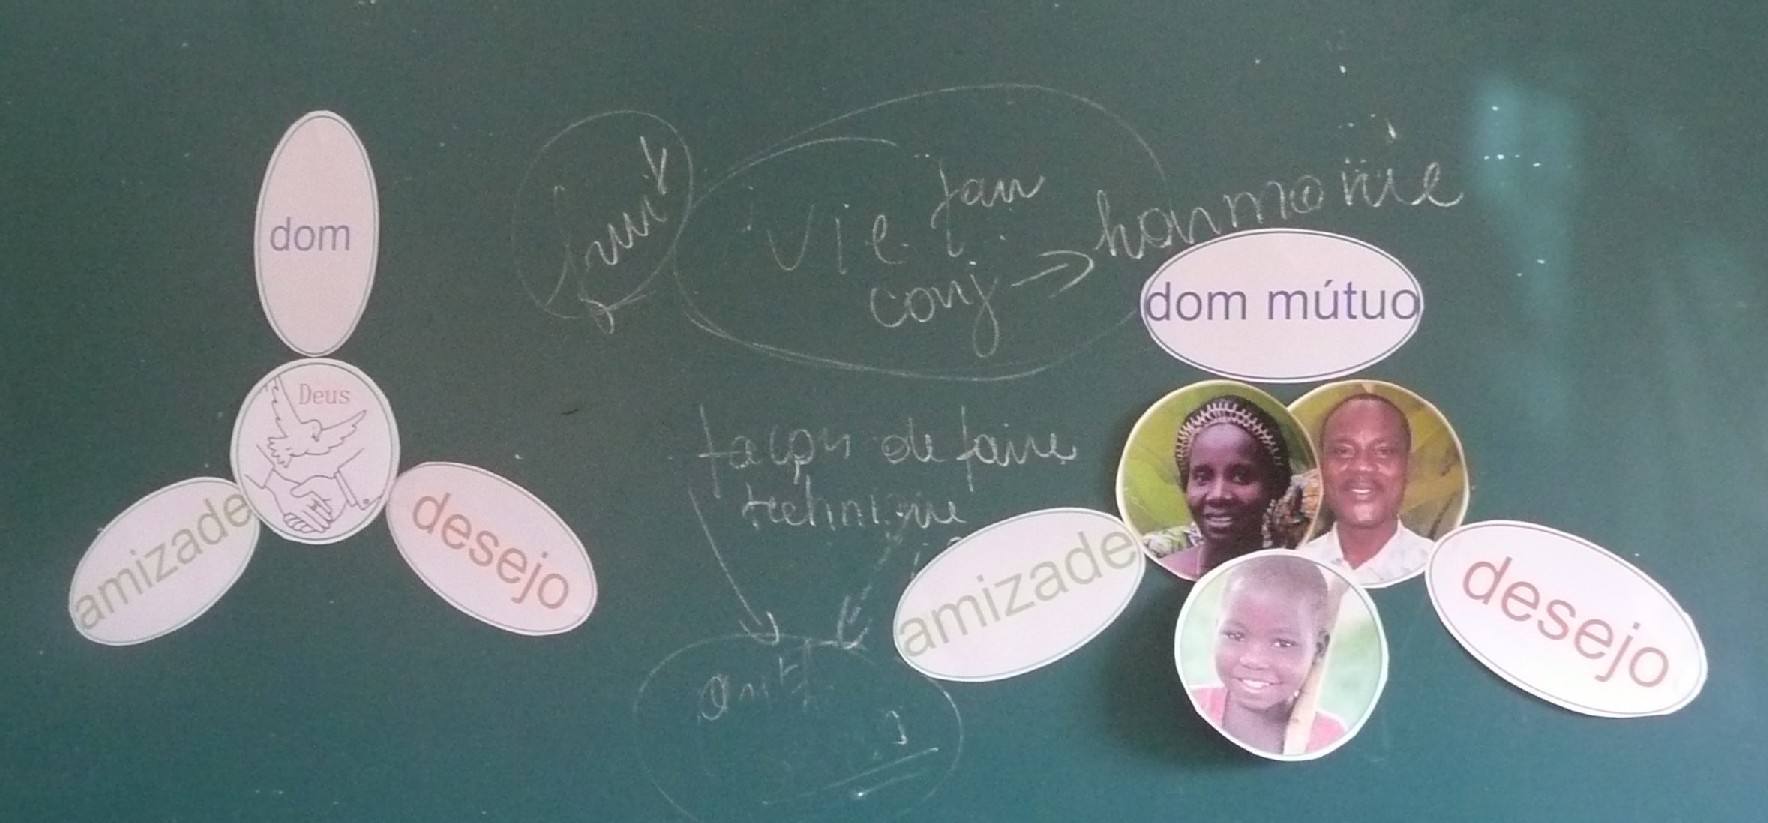 dom
Deus
amizade
desejo
fruit
vie fam
conj → harmonie
façon de faire
technique
dom mútuo
amizade
desejo